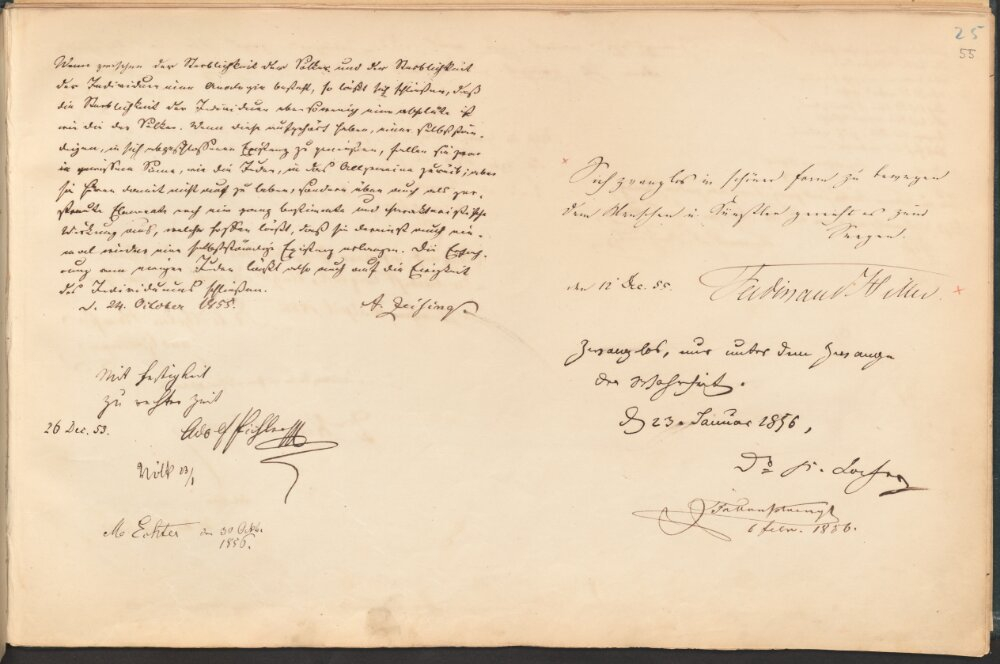 25
55
Wenn zwischen der Sterblichkeit der Völker und der Sterblichkeit
der Individuen eine Analogie besteht, so läßt sich schließen, daß
die Sterblichkeit der Individuen ebensowenig eine absolute ist
wie die der Völker. Wenn diese aufgehört haben, einer selbststän-
digen, in sich abgeschlossenen Existenz zu genießen, fallen sie zwar
in gewissem Sinne, wie die Juden, in das Allgemeine zurück; aber
sie hören damit nicht auf zu leben, sondern üben auch als zer-
streute Elemente noch eine ganz bestimmte und charakteristische
Wirkung aus, welche hoffen läßt, daß sie dereinst auch ein-
mal wieder eine selbstständige Existenz erlangen. Die
vom ewigen Juden läßt also auch auf die Ewigkeit
des Individuums schließen.
d. 24. October 1855. A. Zeising.
Mit Festigkeit
zu rechter Zeit
26 Dec. 53. Adolf Pichler
Völk 23/1
M. Echter den 30 Oktbr.
1856.
Sich zwanglos in schöner Form zu bewegen
dem Menschen u. Künstler gereicht es zum
Seegen.
den 12 Dec. 55. Ferdinand Hiller.
Zwanglos, nur unter dem Zwange
der Wahrheit.
D 23. Januar 1856,
Dr
6 Febr. 1856.